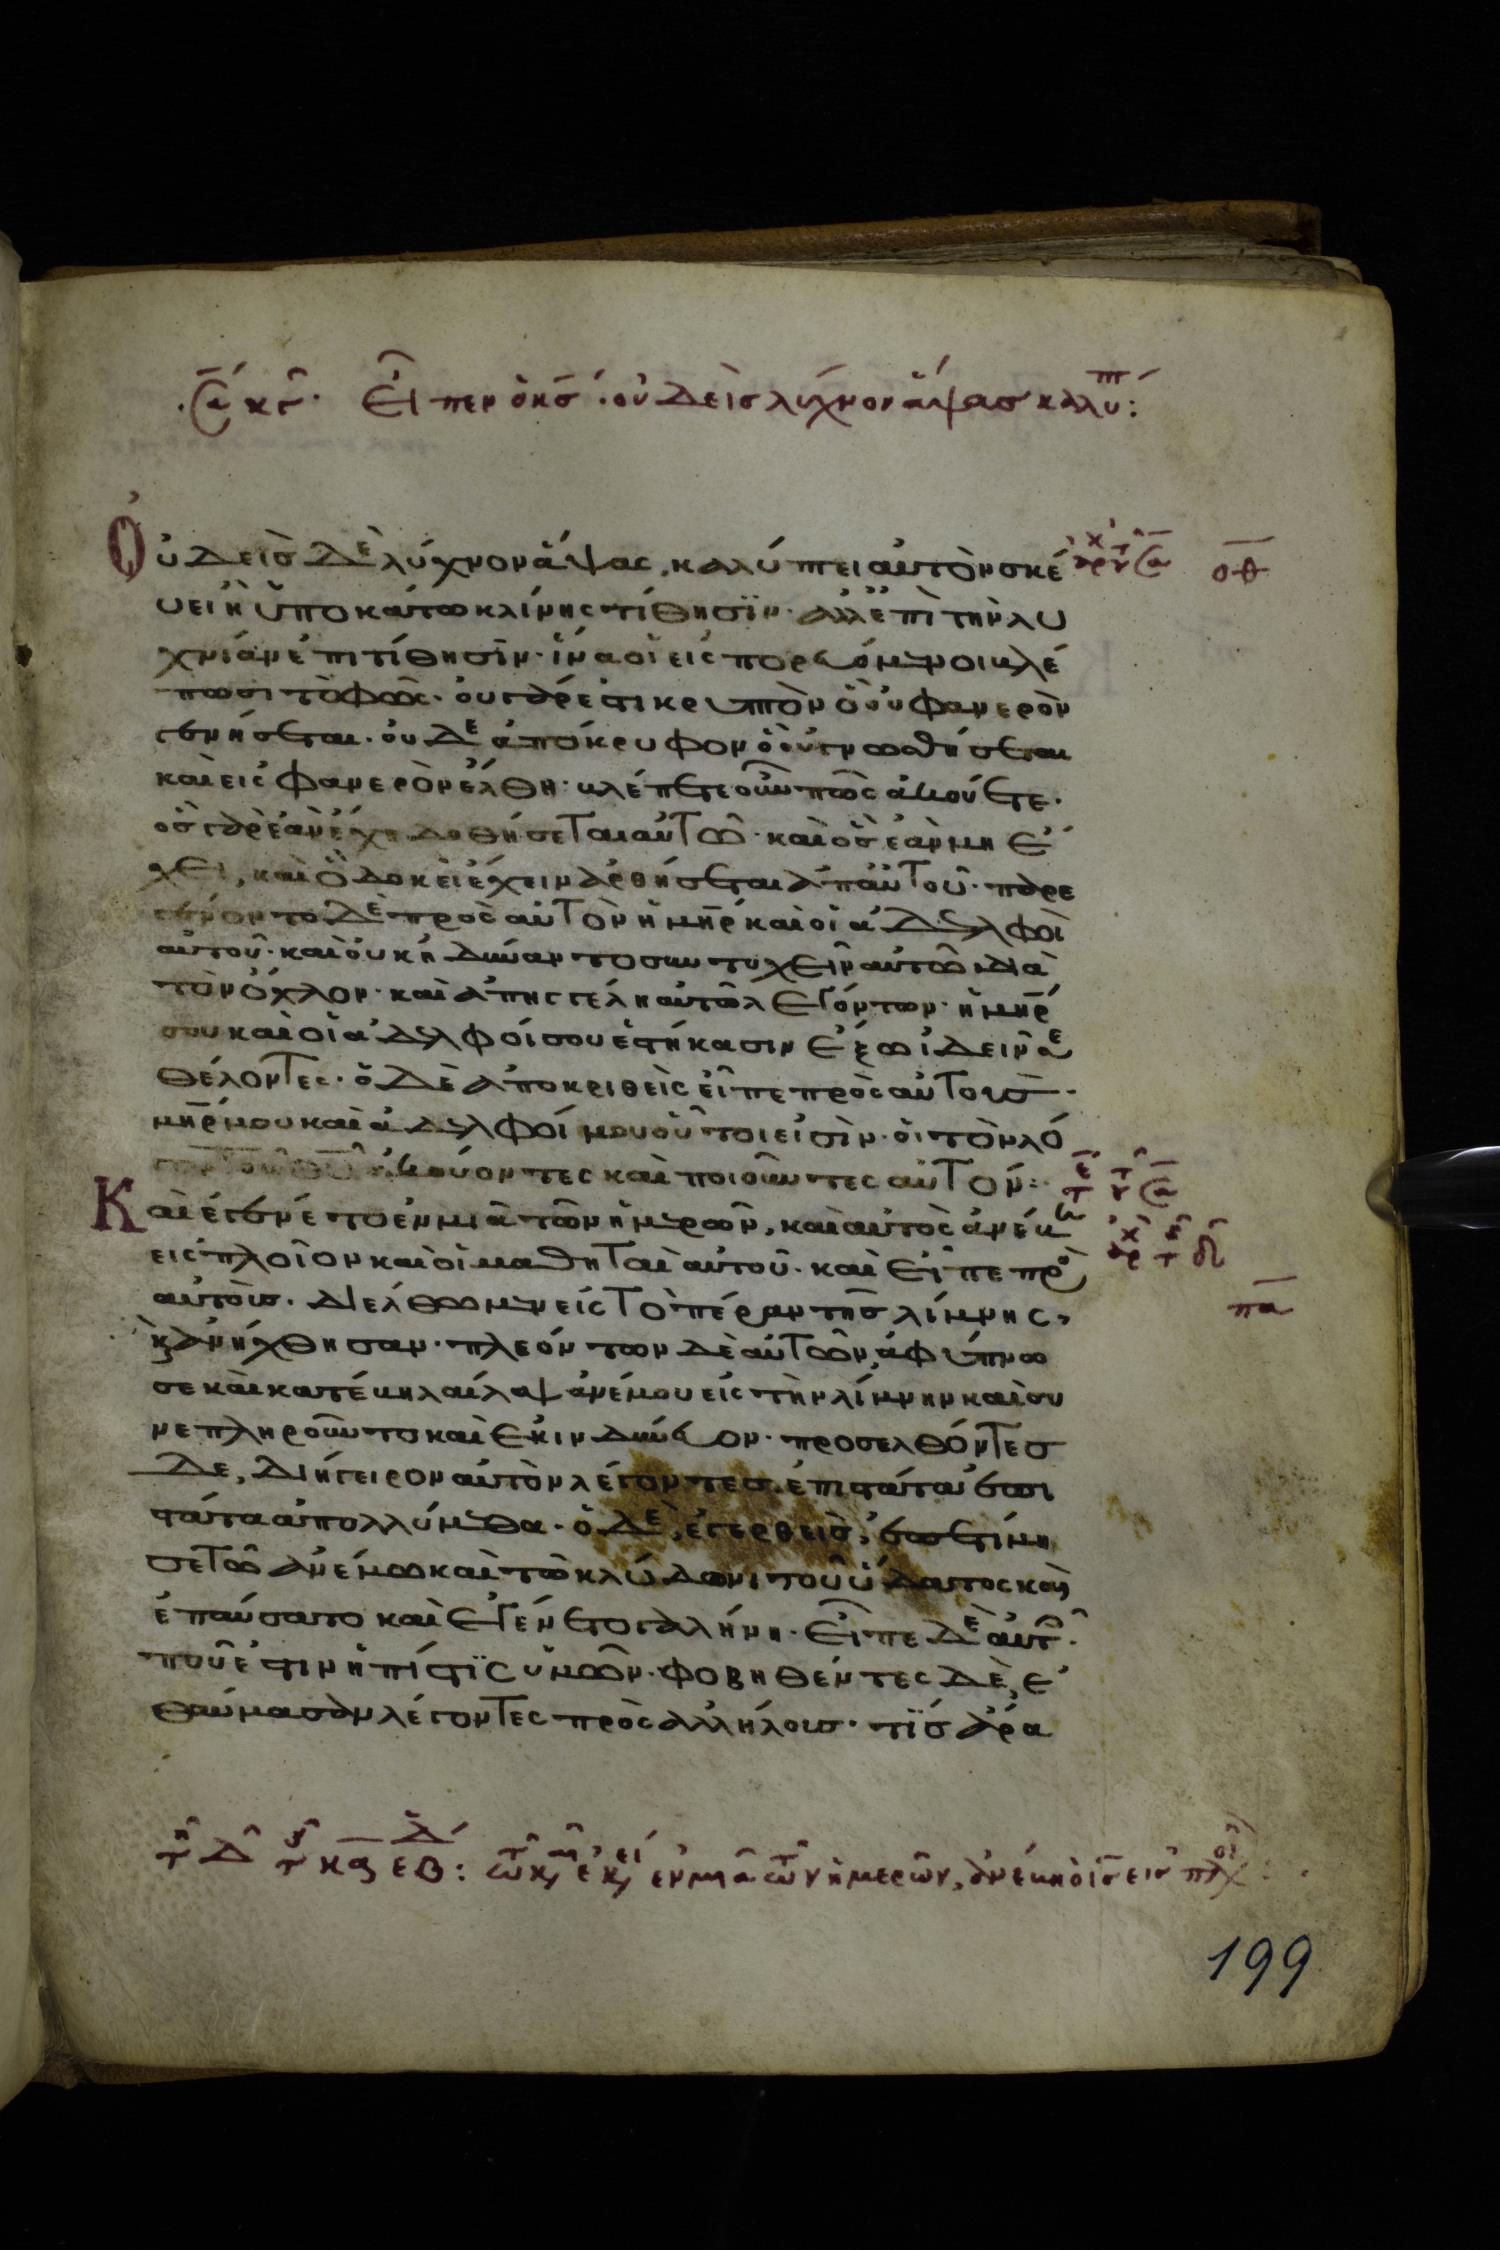 Σα κϛ· Εἶπεν ὁ κσ· οὐδεὶσ λύχνον ἅψασ καλύπτ:
Οὐδεὶσ δὲ λύχνον ἅψας, καλύπτει αὐτὸν σκέ
υει ἢ ὑποκάτω κλίνης τίθησϊν· ἀλλ' ἐπὶ τὴν λυ
χνίαν ἐπιτίθησὶν· ἵνα οἱ εἰσπορευόμενοι βλέ
πωσι τὸ φῶς· οὐ γάρ ἐστι κρυπτὸν ὃ οὐ φανερὸν
γενήσεται· οὐδὲ ἀπόκρυφον ὃ οὐ γνωσθήσεται
καὶ εἰς φανερὸν ἔλθη· βλέπετε οὖν πῶς ἀκούετε·
ὃς γὰρ ἐὰν ἔχη δοθήσεται αὐτῶ· καὶ ὃς ἐὰν μὴ ἔ
χει, καὶ ὃ δοκεὶ ἔχειν ἀρθήσεται ἀπ' αὐτοῦ· παρε
γένοντο δὲ πρὸς αὐτὸν ἡ μηρ καὶ οἱ ἀδελφοὶ
αὐτοῦ· καὶ οὐκ ἠδύναντο συντυχεῖν αὐτῶ διὰ
τὸν ὄχλον· καὶ ἀπηγγέλη αὐτῶ λεγόντων· ἡ μηρ
σου καὶ οἱ ἀδελφοί σου ἑστήκασιν ἔξω ἰδεῖν σε
θέλοντες· ὁ δὲ ἀποκριθεὶς εἶπε πρὸς αὐτοὺσ·
μηρ μου καὶ ἀδελφοί μου οὗτοι εἰσὶν· οἱ τὸν λό
γον τοῦ θυ ἀκούοντες καὶ ποιοῦντες αὐτόν:
Καὶ ἐγένετο ἐν μιᾶ τῶν ἡμερῶν, καὶ αὐτὸς ἀνέβη
εἰς πλοῖον καὶ οἱ μαθηταὶ αὐτοῦ· καὶ εἶπε πρὸ
αὐτοὺσ· διέλθωμεν εἰς τὸ πέραν τῆς λίμνης,
κ ἀνήχθησαν· πλεόντων δὲ αὐτῶν, ἀφύπνω
σε καὶ κατέβη λαίλαψ ἀνέμου εἰς τὴν λίμνην καὶ συ
νεπληροῦντο καὶ ἐκινδύνευον· προσελθόντεσ
δὲ, διήγειρον αὐτὸν λέγοντεσ. ἐπιστάτα ἐπι
στάτα ἀπολλύμεθα· ὁ δὲ, ἐγερθεὶσ, ἐπετίμη
σε τῶ ἀνέμω καὶ τῶ κλύδωνι τοῦ ὕδατος καὶ
ἐπαύσατο καὶ ἐγένετο γαλήνη· εἶπε δὲ αὐτ·
ποῦ ἐστιν ἡ πίστϊς ὑμῶν· φοβηθέντες δὲ, ἐ
θαύμασαν λέγοντες πρὸς ἀλλήλουσ· τϊς ἄρα
οθ
πα
ἐν μιᾶ τῶν ἡμερῶν, ἀνέβη ὁ ισ εἰσ πλοῖ
199